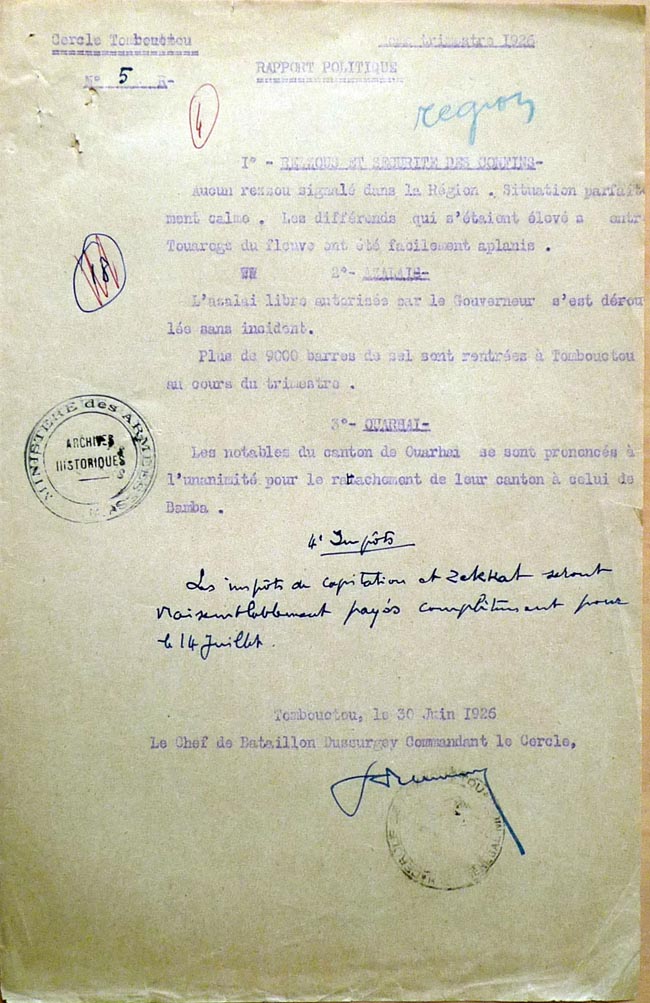 Cercle Tombouctou
trimestre 1926
RAPPORT POLITIQUE
N° 5 R-
4
region
I° - REZZOUS ET SECURITE DES CONFINS-
Aucun rezzou signalé dans la Région . Situation parfaite
ment calme . Les différends qui s'étaient élevé s entre
Touaregs du fleuve ont été facilement aplanis .
18
2°- AZALAIS-
L'azalai libre autorisée par le Gouverneur s'est dérou
lée sans incident.
Plus de 9000 barres de sel sont rentrées à Tombouctou
au cours du trimestre .
3°- OUARHAI-
MINISTÈRE des ARMÉES
ARCHIVES
HISTORIQUES
Les notables du canton de Ouarhai se sont prononcés à
l'unanimité pour le rattachement de leur canton à celui de
Bamba .
4° Impôts
Les impôts de capitation et Zekkat seront
vraisemblablement payés complètement pour
le 14 Juillet.
Tombouctou, le 30 Juin 1926
Le Chef de Bataillon Dussurgey Commandant le Cercle,